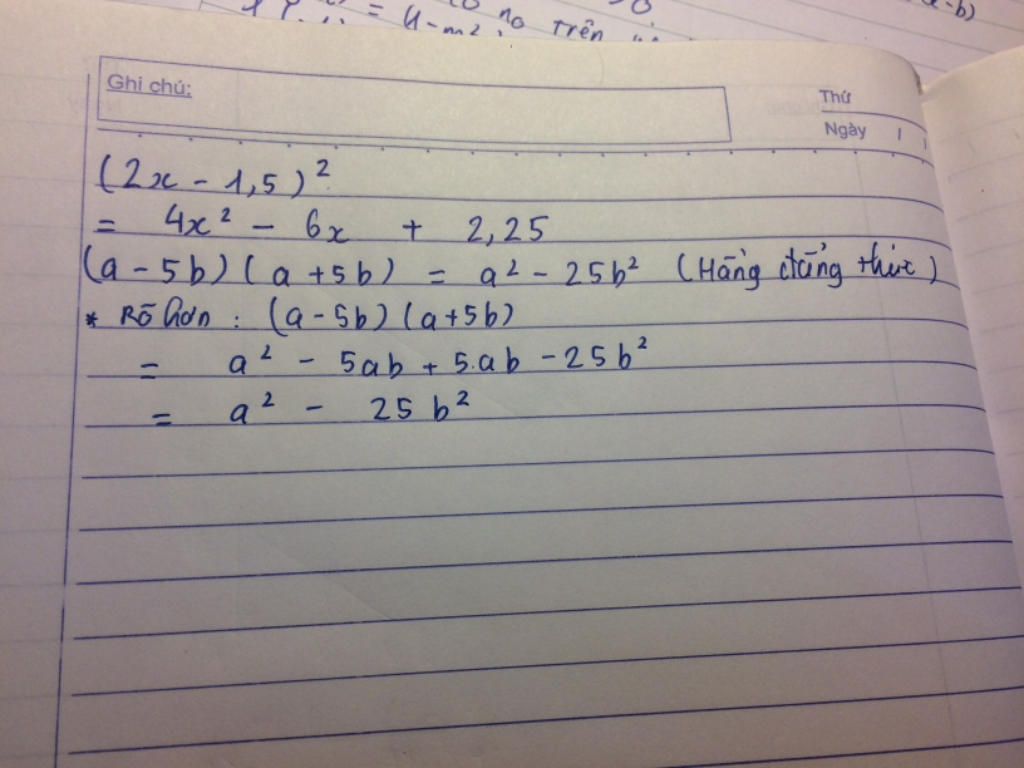 = 4-m²
no trên
-b)
Ghi chú:
Thứ
Ngày
(2x - 1,5)²
= 4x² - 6x + 2,25
(a - 5b)(a + 5b) = a² - 25b² (Hằng đẳng thức)
* Rõ hơn : (a - 5b)(a + 5b)
= a² - 5ab + 5.ab - 25b²
= a² - 25b²